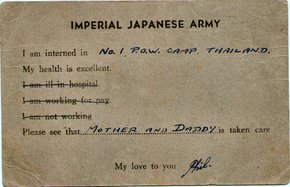 IMPERIAL JAPANESE ARMY
I am interned in No. 1. P.O.W. CAMP, THAILAND.
My health is excellent.
I am ill in hospital
I am working for pay
I am not working
Please see that MOTHER AND DADDY is taken care
My love to you Phil.